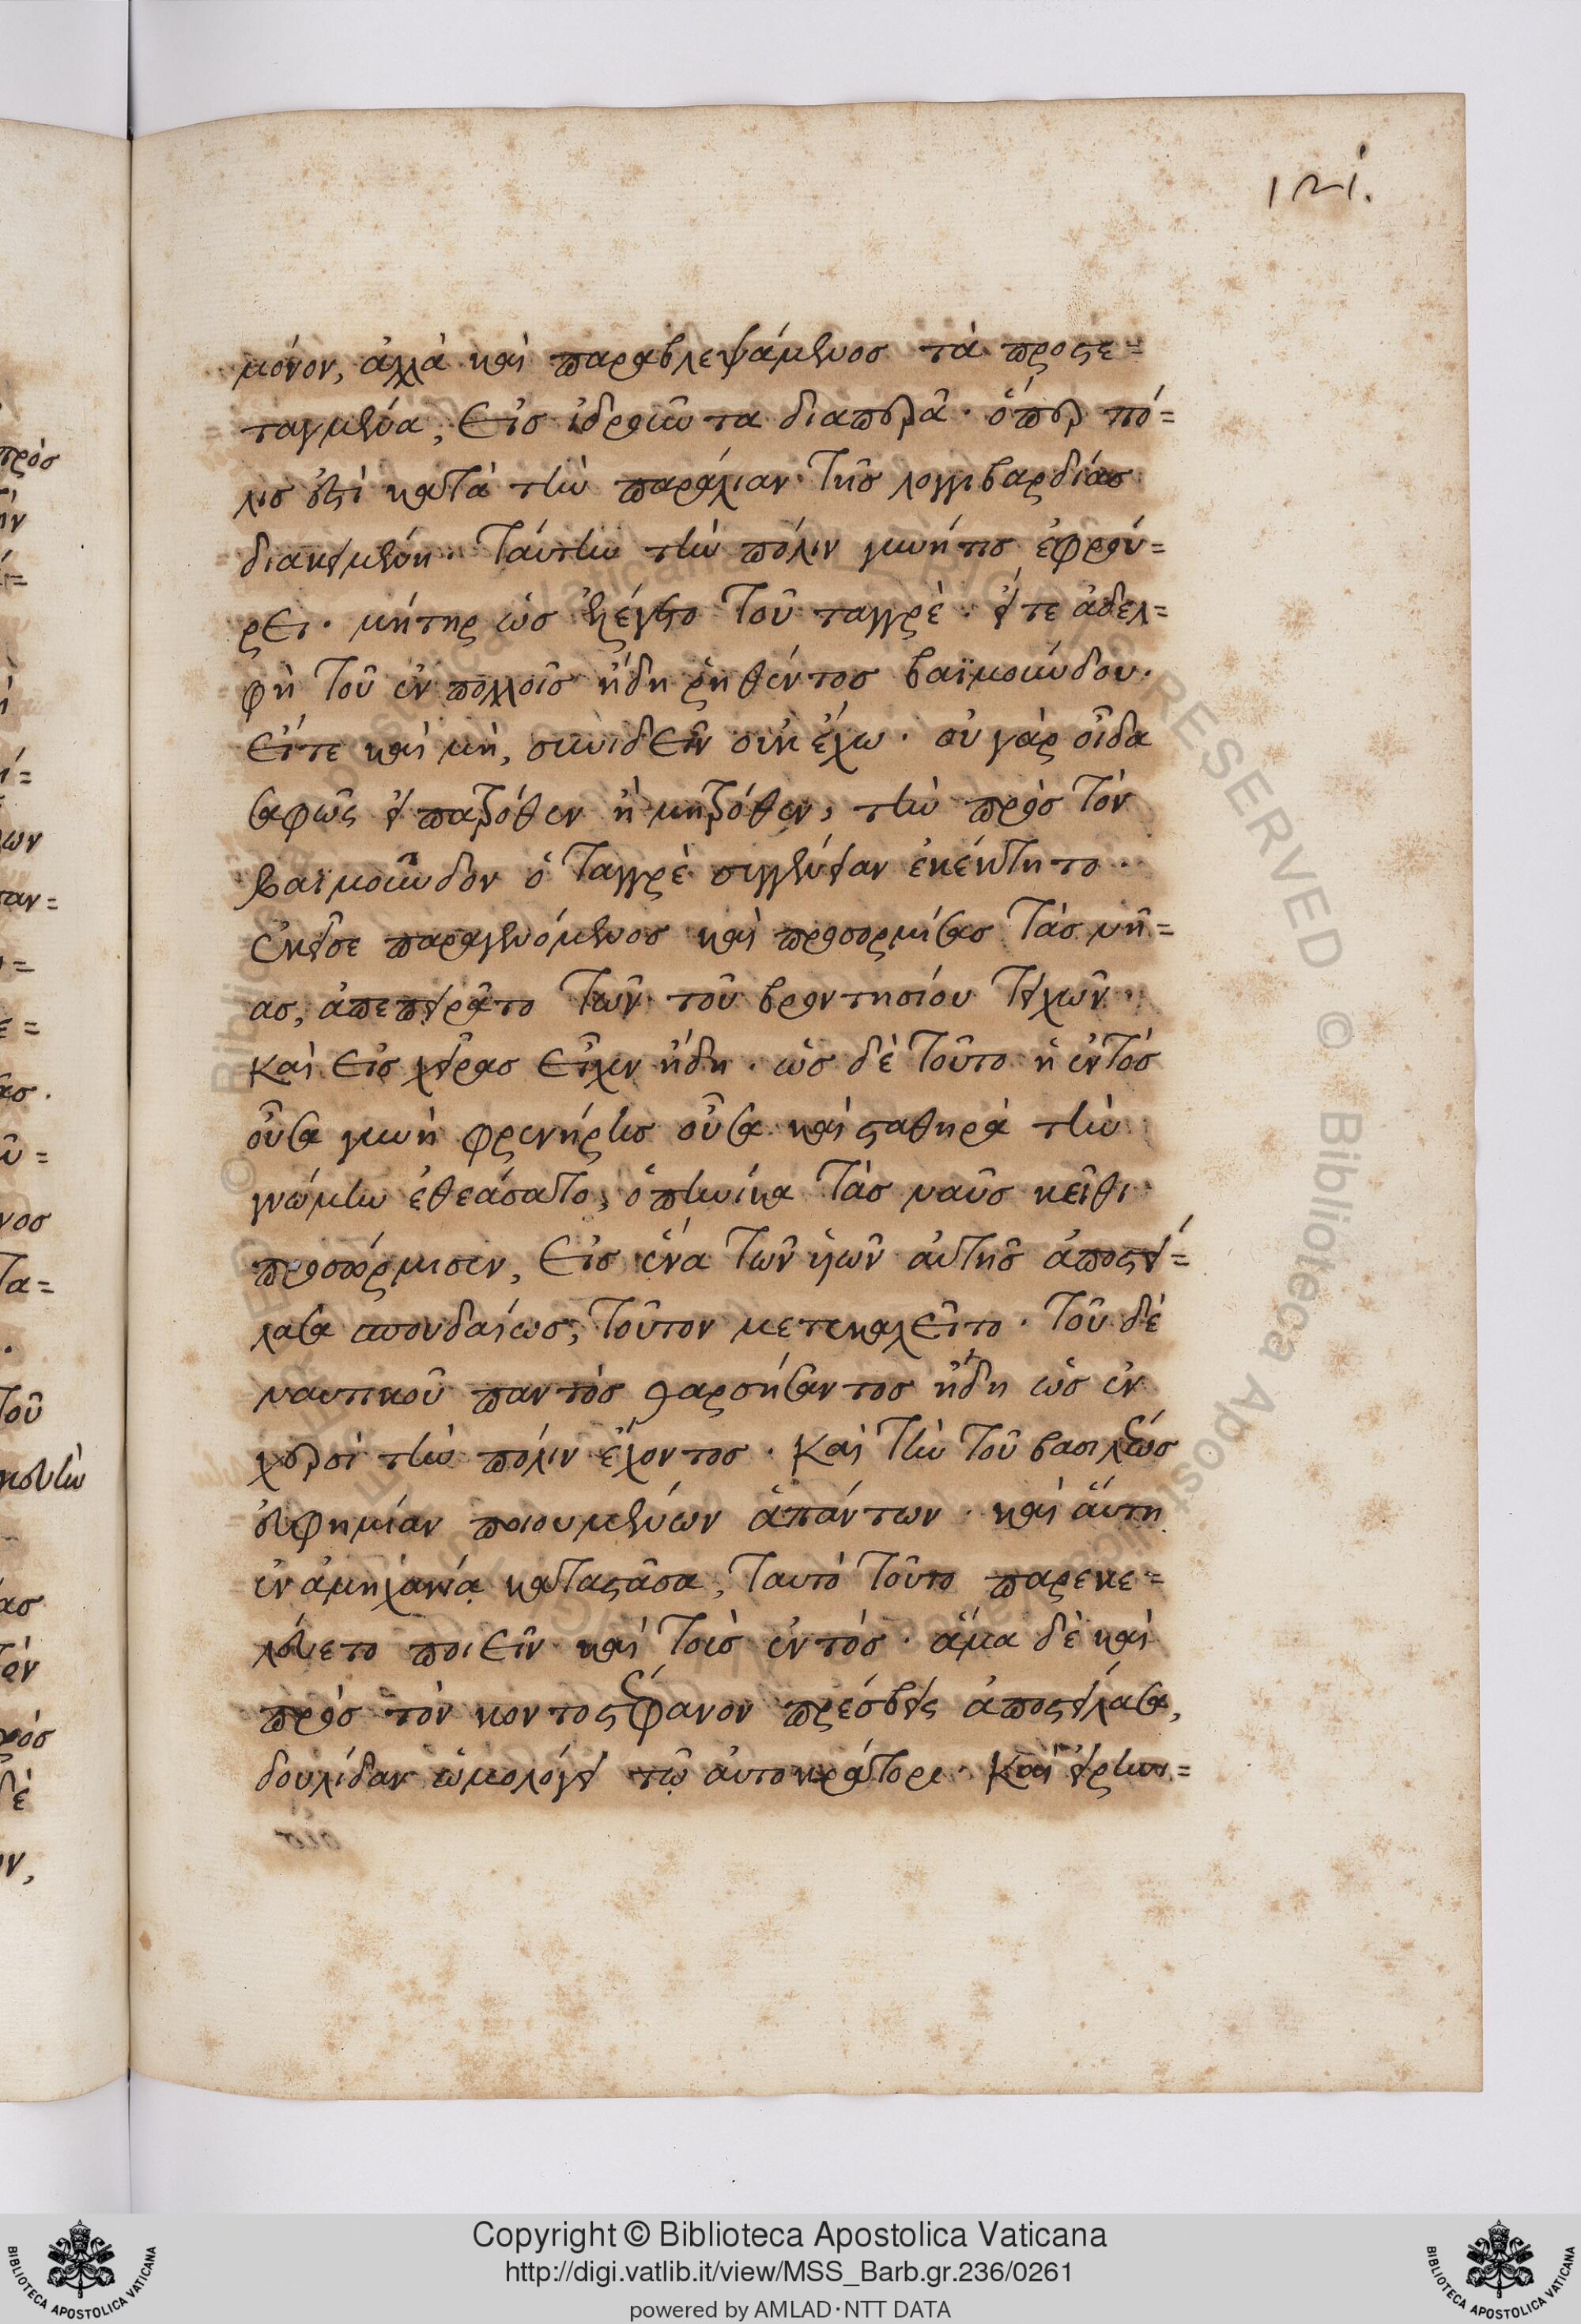 121.
μόνον, ἀλλὰ καὶ παραβλεψάμενος τὰ προστε=
ταγμένα, εἰς ἱδροῦντα διαπερᾶ· ὅπερ πό=
λις ἐστὶ κατὰ τὴν παράλιαν τῆς λογγιβαρδίας
διακειμένη. Ταύτην τὴν πόλιν γυνή τις ἐφρού=
ρει. μήτηρ ὡς ἐλέγετο τοῦ ταγγρὲ. εἴτε ἀδελ=
φὴ τοῦ ἐν πολλοῖς ἤδη ῥηθέντος βαϊμούνδου.
εἴτε καὶ μὴ, συνιδεῖν οὐκ ἔχω. οὐ γὰρ οἶδα
σαφῶς εἰ πατρόθεν ἢ μητρόθεν, τὴν πρὸς τὸν
βαϊμοῦνδον ὁ Ταγγρὲ συγγένειαν ἐκέκτητο.
ἐκεῖσε παραγενόμενος καὶ προσορμίσας τὰς νῆ=
ας, ἀπεπειρᾶτο τῶν τοῦ βροντησίου τειχῶν.
καὶ εἰς χεῖρας εἶχεν ἤδη. ὡς δὲ τοῦτο ἡ ἐντὸς
οὖσα γυνὴ φρενήρης οὖσα καὶ σταθηρὰ τὴν
γνώμην ἐθεάσατο, ὁπηνίκα τὰς ναῦς κεῖθι
προσώρμισεν, εἰς ἕνα τῶν υἱῶν αὐτῆς ἀποστεί=
λασα σπουδαίως, τοῦτον μετεκαλεῖτο. τοῦ δὲ
ναυτικοῦ παντὸς θαρσήσαντος ἤδη ὡς ἐν
χερσὶ τὴν πόλιν ἔχοντος. καὶ τὴν τοῦ βασιλέως
εὐφημίαν ποιουμένων ἁπάντων. καὶ αὕτη
ἐν ἀμηχανίᾳ καταστᾶσα, ταυτὸ τοῦτο παρεκε=
λεύετο ποιεῖν καὶ τοὺς ἐντός. ἅμα δὲ καὶ
πρὸς τὸν κοντοστέφανον πρέσβεις ἀποστείλασα,
δουλείαν ὡμολόγει τῷ αὐτοκράτορι. καὶ εἰρην=
Copyright © Biblioteca Apostolica Vaticana
http://digi.vatlib.it/view/MSS_Barb.gr.236/0261
powered by AMLAD·NTT DATA
BIBLIOTECA APOSTOLICA VATICANA
BIBLIOTECA APOSTOLICA VATICANA